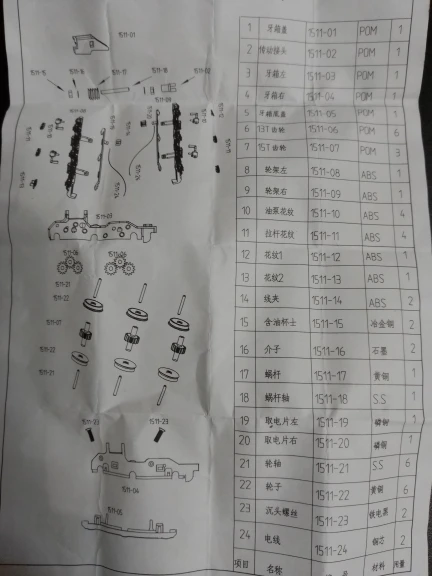 1511-01
1511-15
1511-16
1511-17
1511-18
1511-02
1511-03
1511-21
1511-22
1511-07
1511-22
1511-21
1511-23
1511-23
1511-04
1511-05
1 牙箱盖 1511-01 POM 1
2 传动接头 1511-02 POM 1
3 牙箱左 1511-03 POM 1
4 牙箱右 1511-04 POM 1
5 牙箱底盖 1511-05 POM 1
6 13T齿轮 1511-06 POM 6
7 15T齿轮 1511-07 POM 3
8 轮架左 1511-08 ABS 1
9 轮架右 1511-09 ABS 1
10 油泵花纹 1511-10 ABS 4
11 拉杆花纹 1511-11 ABS 4
12 花纹1 1511-12 ABS 1
13 花纹2 1511-13 ABS 1
14 线夹 1511-14 ABS 2
15 含油杯士 1511-15 冶金铜 2
16 介子 1511-16 石墨 2
17 蜗杆 1511-17 黄铜 1
18 蜗杆轴 1511-18 S.S 1
19 取电片左 1511-19 磷铜 1
20 取电片右 1511-20 磷铜 1
21 轮轴 1511-21 S.S 6
22 轮子 1511-22 黄铜 6
23 沉头螺丝 1511-23 2
24 电线 1511-24 铜芯 2
项目 名称 号 材料 用量